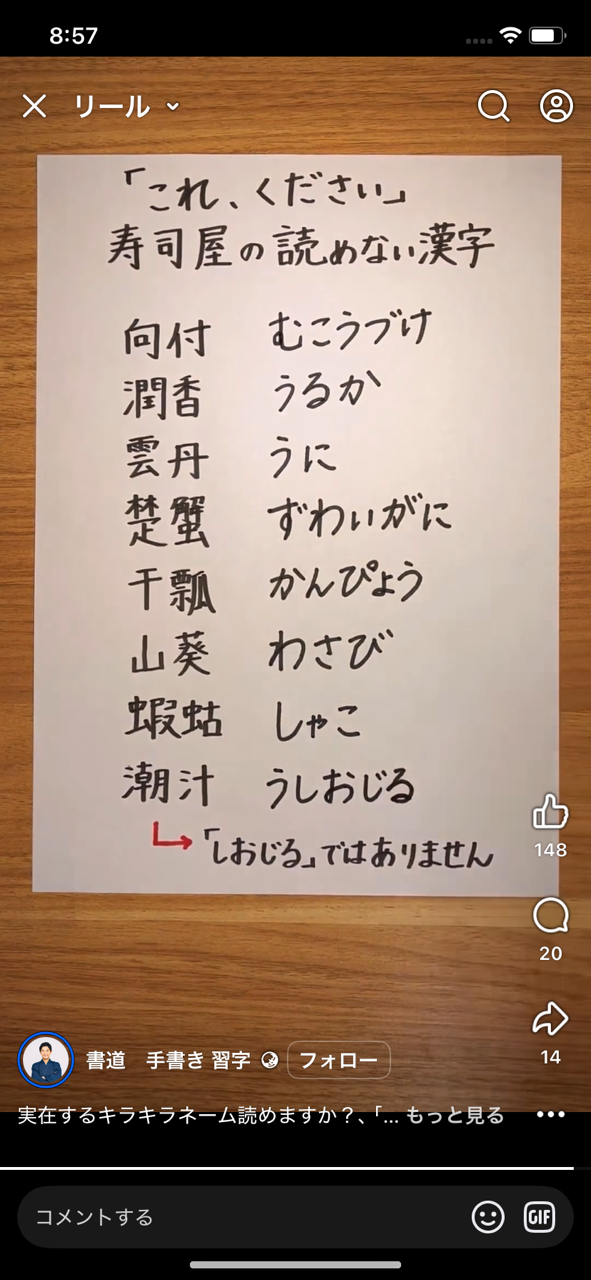 8:57
リール
「これ、ください」
寿司屋の読めない漢字
向付 むこうづけ
潤香 うるか
雲丹 うに
楚蟹 ずわいがに
干瓢 かんぴょう
山葵 わさび
蝦蛄 しゃこ
潮汁 うしおじる
「しおじる」ではありません
148
20
14
書道 手書き 習字
フォロー
実在するキラキラネーム読めますか？、「... もっと見る
コメントする
GIF